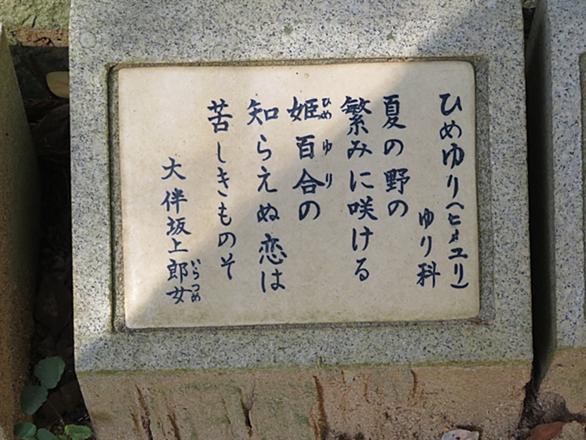 ひめゆり(ヒメユリ)
ゆり科
夏の野の
繁みに咲ける
姫百合の
ひめゆり
知らえぬ恋は
苦しきものそ
大伴坂上郎女
いらつめ